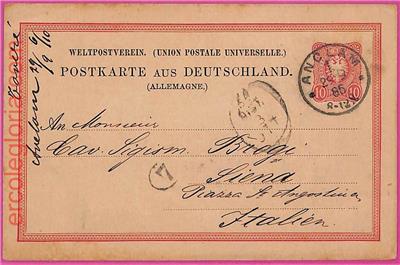 WELTPOSTVEREIN. (UNION POSTALE UNIVERSELLE.)
POSTKARTE AUS DEUTSCHLAND.
(ALLEMAGNE.)
10 10
ANCLAM
86
8-12
An Monsieur
Cav. Sigism. Brogi
Siena
Piazza St. Agostino
Italien.
7
Anclam 29/9
ercolegloria